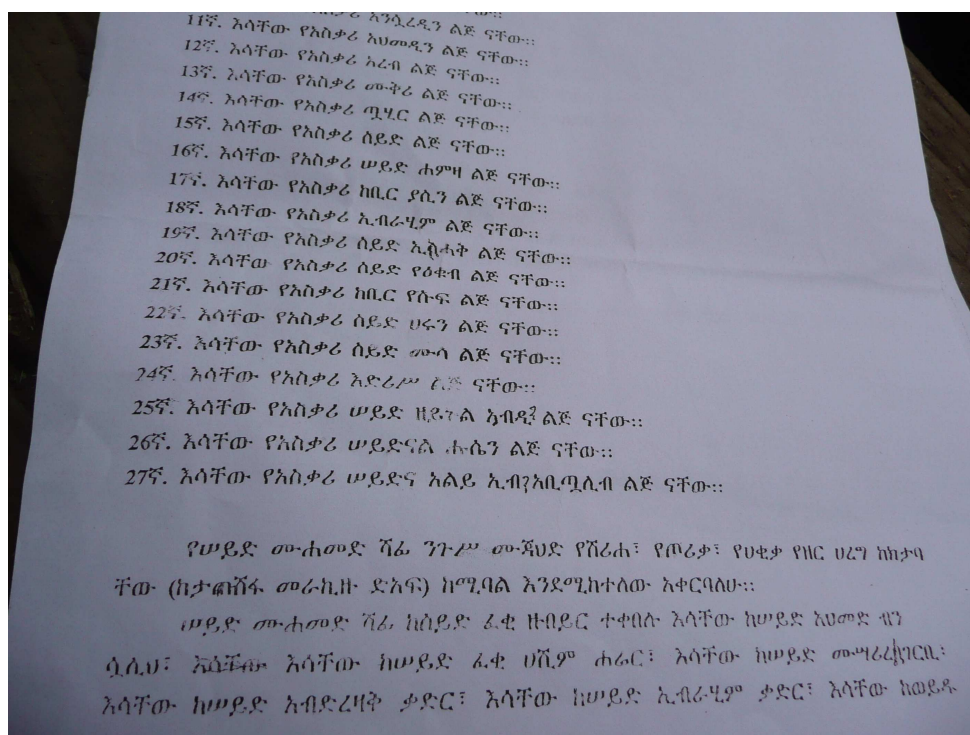 አንሷረዲን ልጅ ናቸው።
11ኛ. እሳቸው የአስቃሪ አህመዲን ልጅ ናቸው።
12ኛ. እሳቸው የአስቃሪ አረብ ልጅ ናቸው።
13ኛ. እሳቸው የአስቃሪ ሙቅሪ ልጅ ናቸው።
14ኛ. እሳቸው የአስቃሪ ጧሂር ልጅ ናቸው።
15ኛ. እሳቸው የአስቃሪ ሰይድ ልጅ ናቸው።
16ኛ. እሳቸው የአስቃሪ ሠይድ ሐምዛ ልጅ ናቸው።
17ኛ. እሳቸው የአስቃሪ ከቢር ያሲን ልጅ ናቸው።
18ኛ. እሳቸው የአስቃሪ ኢብራሂም ልጅ ናቸው።
19ኛ. እሳቸው የአስቃሪ ሰይድ ኢስሓቅ ልጅ ናቸው።
20ኛ. እሳቸው የአስቃሪ ሰይድ የዕቁብ ልጅ ናቸው።
21ኛ. እሳቸው የአስቃሪ ከቢር የሱፍ ልጅ ናቸው።
22ኛ. እሳቸው የአስቃሪ ሰይድ ሀሩን ልጅ ናቸው።
23ኛ. እሳቸው የአስቃሪ ሰይድ ሙሳ ልጅ ናቸው።
24ኛ. እሳቸው የአስቃሪ እድሪሥ ልጅ ናቸው።
25ኛ. እሳቸው የአስቃሪ ሠይድ ልጅ ናቸው።
26ኛ. እሳቸው የአስቃሪ ሠይድናል ሑሴን ልጅ ናቸው።
27ኛ. እሳቸው የአስቃሪ ሠይድና አልይ ኢብ?አቢጧሊብ ልጅ ናቸው።
የሠይድ ሙሐመድ ሻፊ ንጉሥ ሙጃህድ የሸሪሐ፣ የጦሪቃ፣ የሀቂቃ የዘር ሀረግ ከክታባ
ቸው (ከታጨሸፋ መራኪዙ ድአፍ) ከሚባል እንደሚከተለው አቀርባለሁ።
ሠይድ ሙሐመድ ሻፊ ከሰይድ ፈቂ ዙበይር ተቀበሉ እሳቸው ከሠይድ አህመድ ብን
ሷሊህ፣ እሳቸው ከሠይድ ፈቂ ሀሺም ሐሬር፣ እሳቸው ከሠይድ
እሳቸው ከሠይድ አብድረዛቅ ቃድር፣ እሳቸው ከሠይድ ኢብራሂም ቃድር፣ እሳቸው ከወይዱ